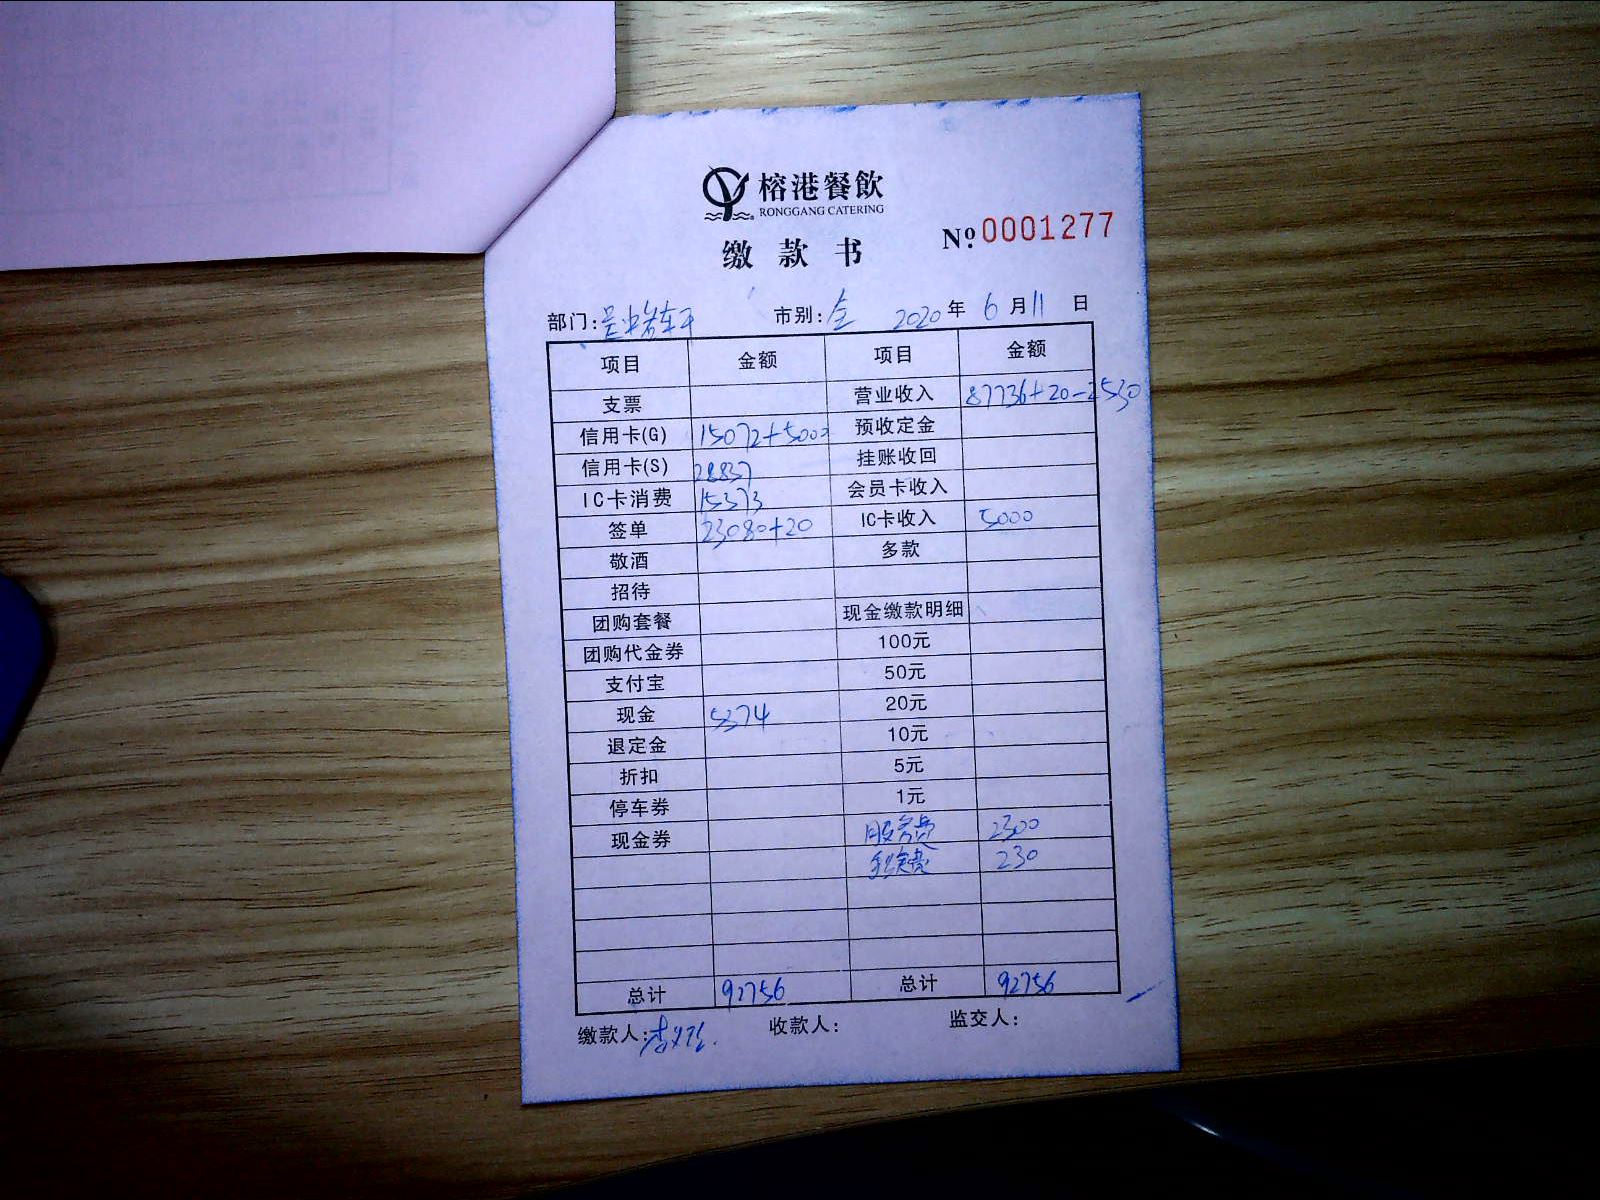 榕港餐飲
RONGGANG CATERING
缴款书 №0001277
部门: 市别:全 2020年6月11日
项目 金额 项目 金额
支票 营业收入 87736+20-2530
信用卡(G) 15072+5000 预收定金
信用卡(S) 28837 挂账收回
IC卡消费 15373 会员卡收入
签单 23080+20 IC卡收入 5000
敬酒 多款
招待
团购套餐 现金缴款明细
团购代金券 100元
支付宝 50元
现金 5374 20元
退定金 10元
折扣 5元
停车券 1元
现金券 服务费 2300
230
总计 92756 总计 92756
缴款人: 收款人: 监交人: